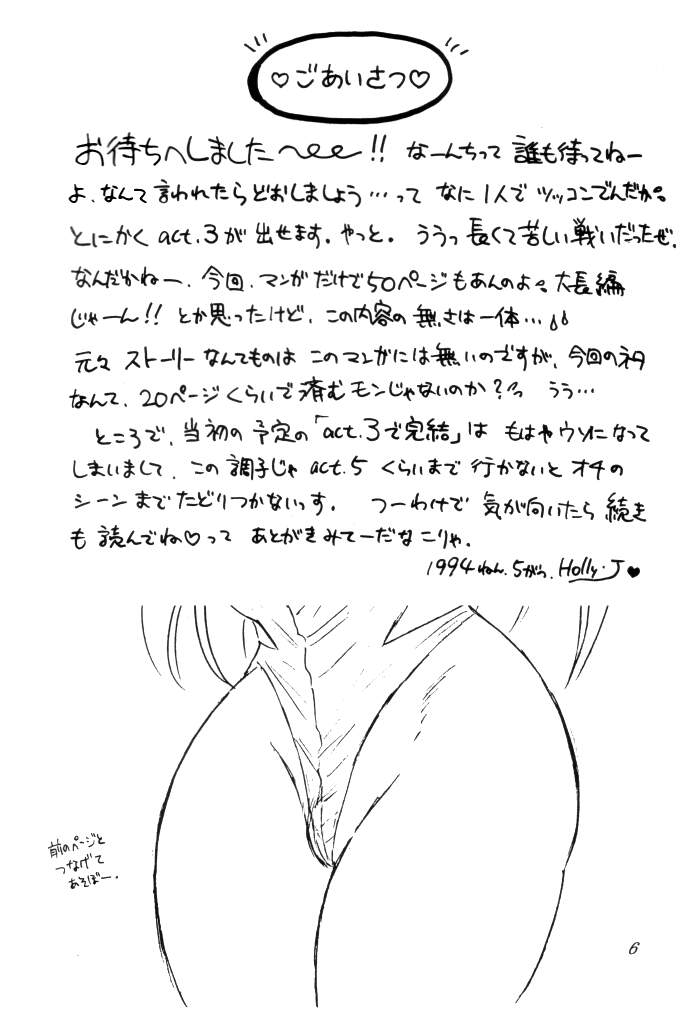 ♡ごあいさつ♡
お待ちへしました〜ee!! なーんちって 誰も待ってねー
よ、なんて言われたらどおしましょう…って なに1人でツッコンでんだか。
とにかく act.3が 出せます。やっと。 ううっ 長くて苦しい戦いだったぜ、
なんだかねー、今回、マンガだけで50ページもあんのよ。大長編
じゃーん!! とか思ったけど、この内容の無さは一体…
元々 ストーリーなんてものは このマンガには無いのですが、今回のネタ
なんて、20ページくらいで済むモンじゃないのか?っ うう…
ところで、当初の予定の「act.3で完結」は もはやウソになって
しまいまして、この調子じゃ act.5 くらいまで行かないと オチの
シーンまでたどりつかないっす。 つーわけで 気が向いたら続き
も 読んでね♡って あとがきみてーだなこりゃ.
1994ねん.5がつ. Holly・J♥
前のページと
つなげて
あそぼー.
6